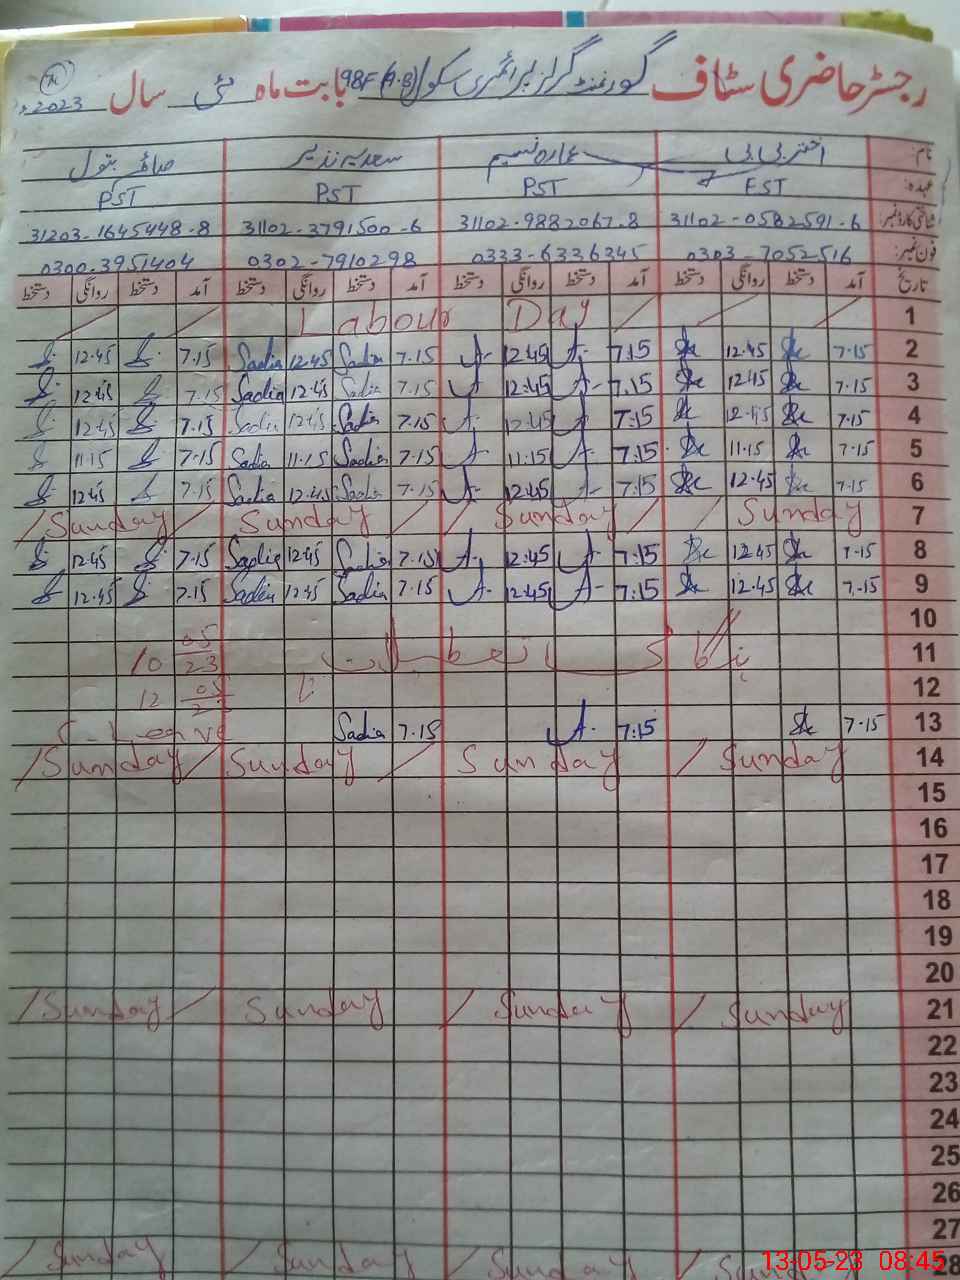 رجسٹر حاضری سٹاف گورنمنٹ گرلز پرائمری سکول 98F(A.B) بابت ماہ مئی سال 2023ء
نام: اختر بی بی عمارہ نسیم سعدیہ نذیر صائمہ بتول
عہدہ: EST PST PST PST
شناختی کارڈ نمبر: 31102-0582591-6 31102-9882067-8 31102-3791500-6 31203-1645448-8
فون نمبر: 0303-7052516 0333-6336345 0302-7910298 0300-3951404
تاریخ آمد دستخط روانگی دستخط آمد دستخط روانگی دستخط آمد دستخط روانگی دستخط آمد دستخط روانگی دستخط
1 Labour Day
2 7.15 12.45 7:15 12:45 7.15 Sadia 12.45 Sadia 7.15 12.45
3 7.15 12.45 7.15 12:45 7.15 Sadia 12.45 Sadia 7.15 12.45
4 7.15 12.45 7:15 12.45 7.15 Sadia 12.45 Sadia 7.15 12.45
5 7.15 11.15 7:15 11:15 7.15 Sadia 11.15 Sadia 7.15 11.15
6 7.15 12.45 7:15 12.45 7.15 Sadia 12.45 Sadia 7.15 12.45
7 Sunday Sunday Sunday Sunday
8 7.15 12.45 7:15 12:45 7.15 Sadia 12.45 Sadia 7.15 12.45
9 7.15 12.45 7:15 12.45 7.15 Sadia 12.45 Sadia 7.15 12.45
10
11 ہنگامی تعطیلات 10 05/23
12 تا 12 05/23
13 7.15 7:15 7.15 Sadia Leave
14 Sunday Sunday Sunday Sunday
15
16
17
18
19
20
21 Sunday Sunday Sunday Sunday
22
23
24
25
26
27
28 Sunday Sunday Sunday Sunday
13-05-23 08:45